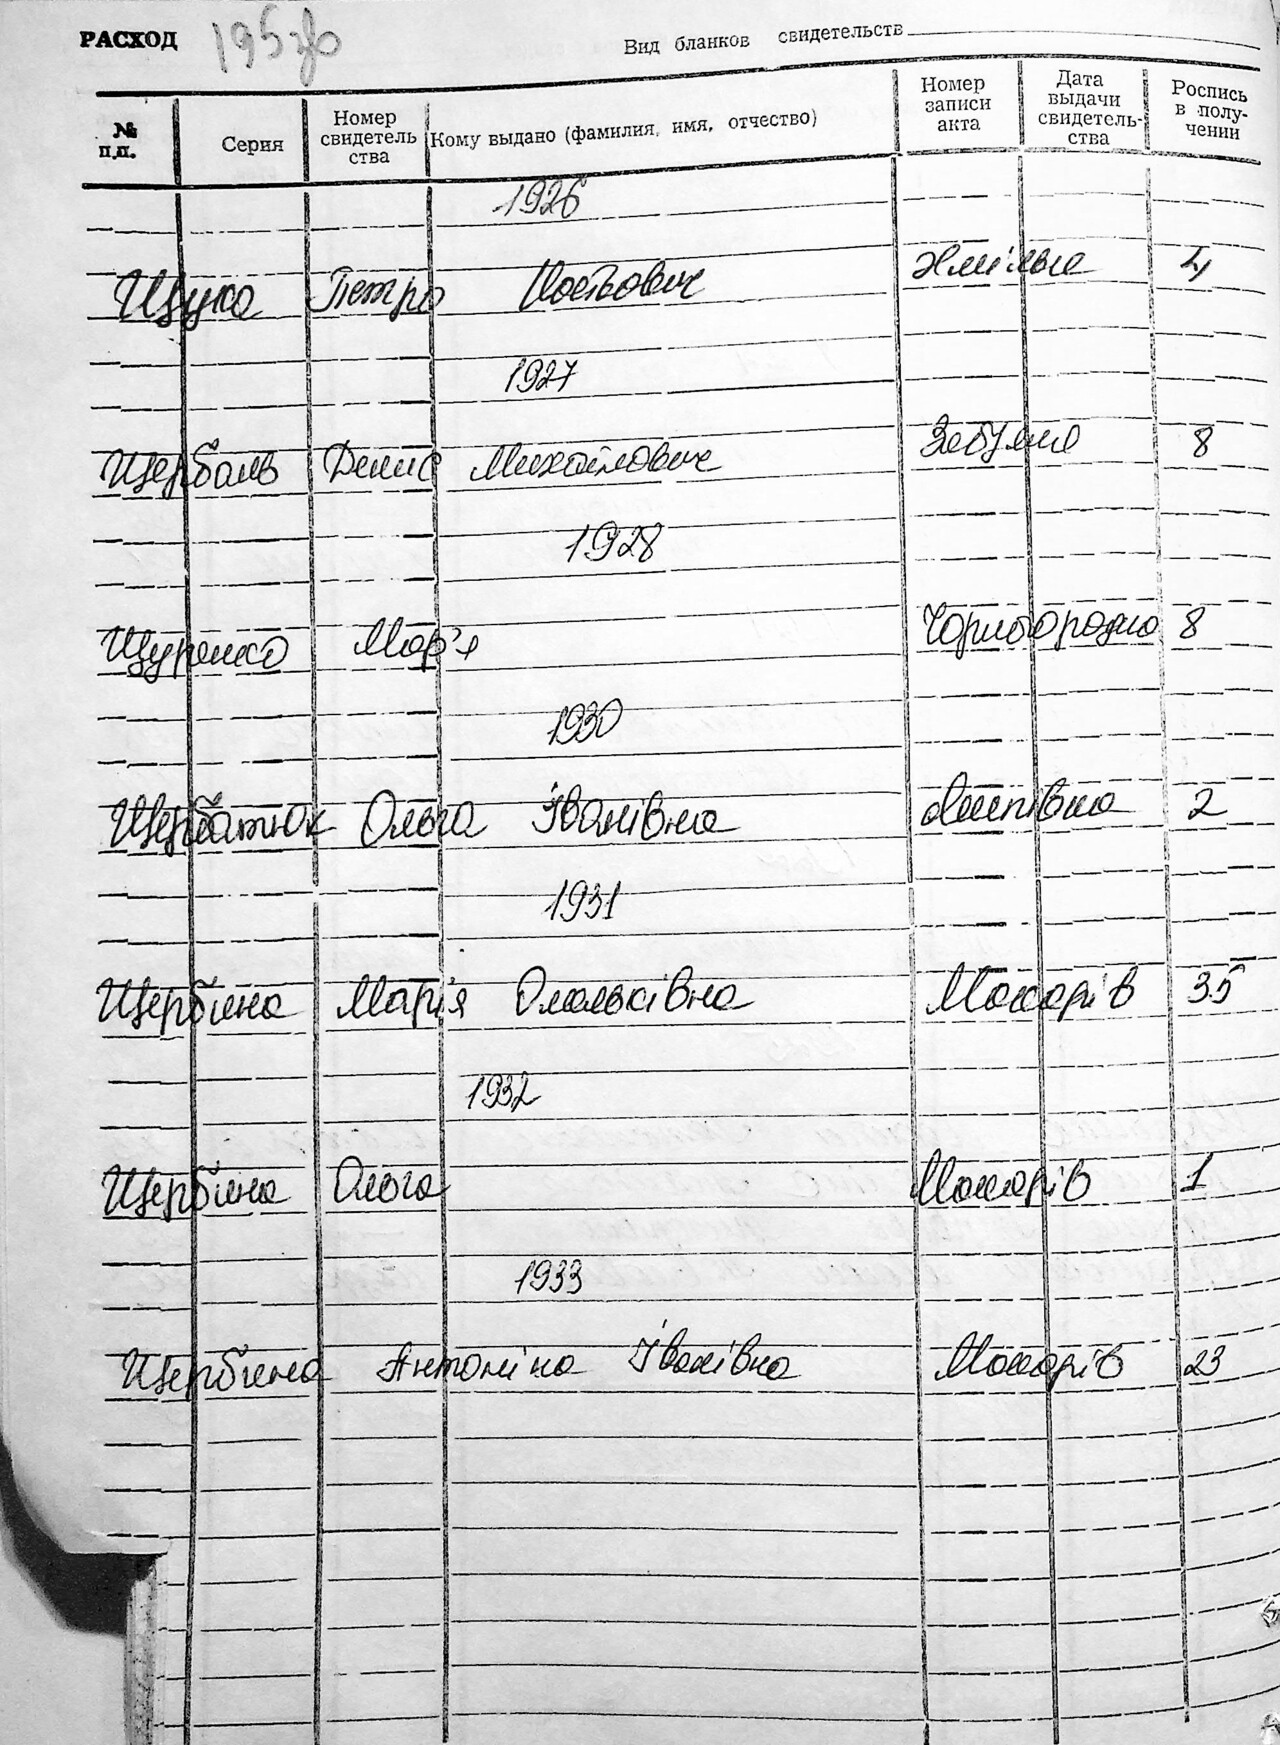 РАСХОД 195зв
Вид бланков свидетельств
№ п.п.
Серия
Номер свидетель ства
Кому выдано (фамилия, имя, отчество)
Номер записи акта
Дата выдачи свидетель- ства
Роспись в полу- чении
1926
Щука Петро 4
1927
Щербань Денис Михайлович 8
1928
Щуренко Мар'я Чорногородка 8
1930
Щербатюк Ольга Іванівна Липівка 2
1931
Щербина Марія Омельківна Макарів 35
1932
Щербина Ольга Макарів 1
1933
Щербина Антоніна Іванівна Макарів 23